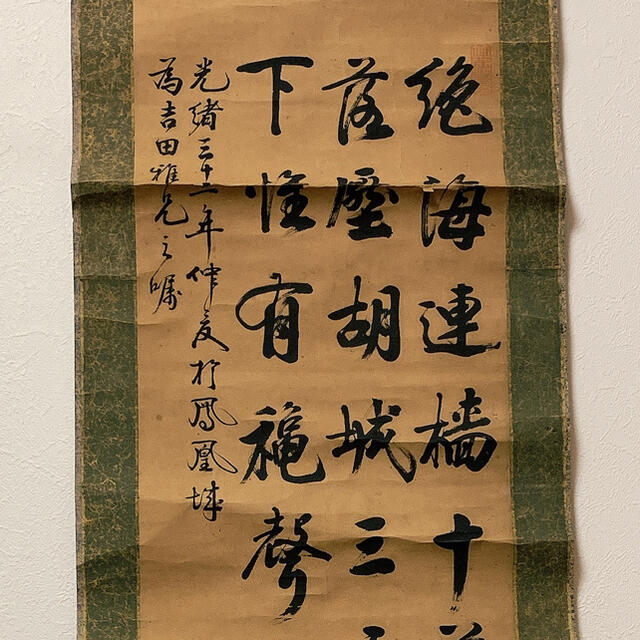 絶海連檣十
蔭壓胡城三
下惟有穐聲
光緒三十二年仲夏於鳳凰城
為吉田雅兄之嘱